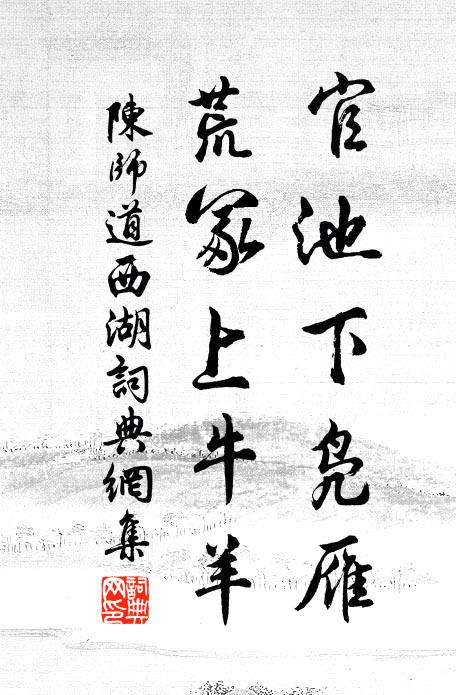 官池下凫雁
荒冢上牛羊
陳師道西湖詞典網集
詞典網印